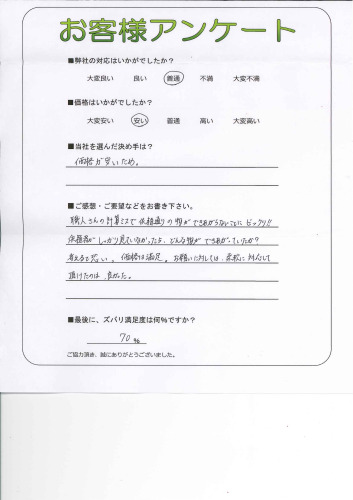 お客様アンケート
■弊社の対応はいかがでしたか?
大変良い 良い 普通 不満 大変不満
■価格はいかがでしたか?
大変安い 安い 普通 高い 大変高い
■当社を選んだ決め手は?
価格が安いため。
■ご感想・ご要望などをお書き下さい。
職人さんの計算ミスで依頼通りの物ができあがらないことにビックリ!!
依頼者がしっかり見ていなかったら、どんな物ができあがっていたか?
考えると恐い。価格は満足。お願いに対しては、柔軟に対応して
頂けたのは、良かった。
■最後に、ズバリ満足度は何%ですか?
70 %
ご協力頂き、誠にありがとうございました。